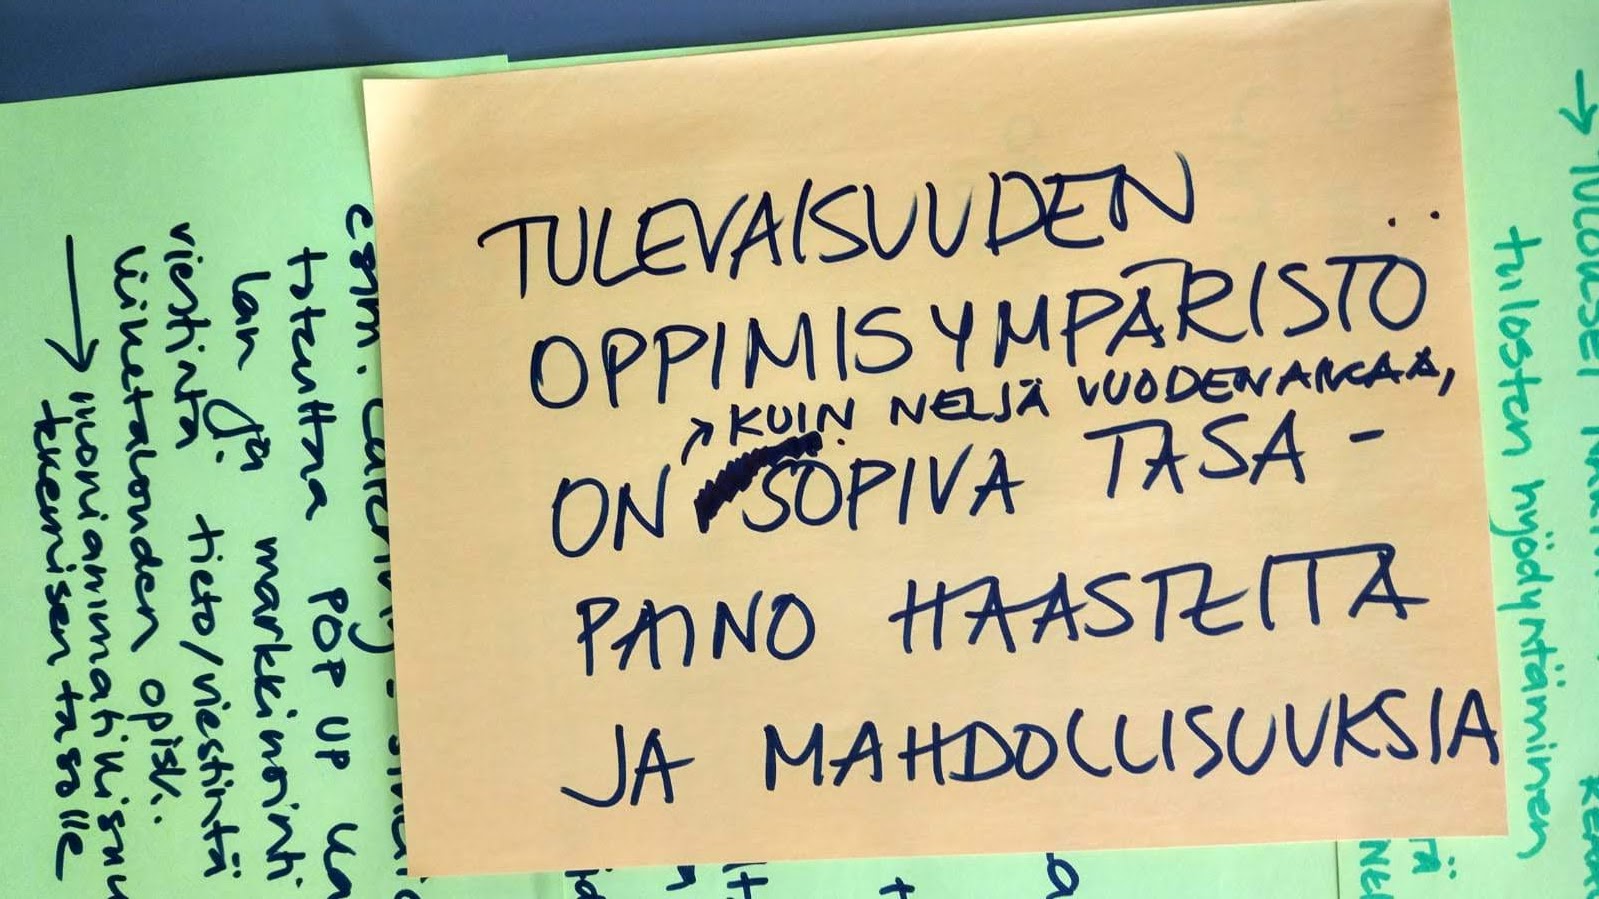 TULEVAISUUDEN
OPPIMISYMPÄRISTÖ
→ KUIN NELJÄ VUODENAIKAA,
ON SOPIVA TASA-
PAINO HAASTEITA
JA MAHDOLLISUUKSIA
esim.
toteuttaa POP UP
lan ja markkinointi
viestintä tieto/viestintä
liiketalouden opisk.
→
tekemisen tasolle
→ TULOKSET
tulosten hyödyntäminen